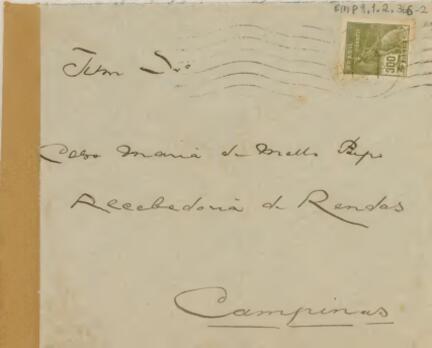 EMP 9.1.2.366-2
BRASIL
300
Ilmo Snr
Celso Maria de Mello Pupo
Recebedoria de Rendas
Campinas